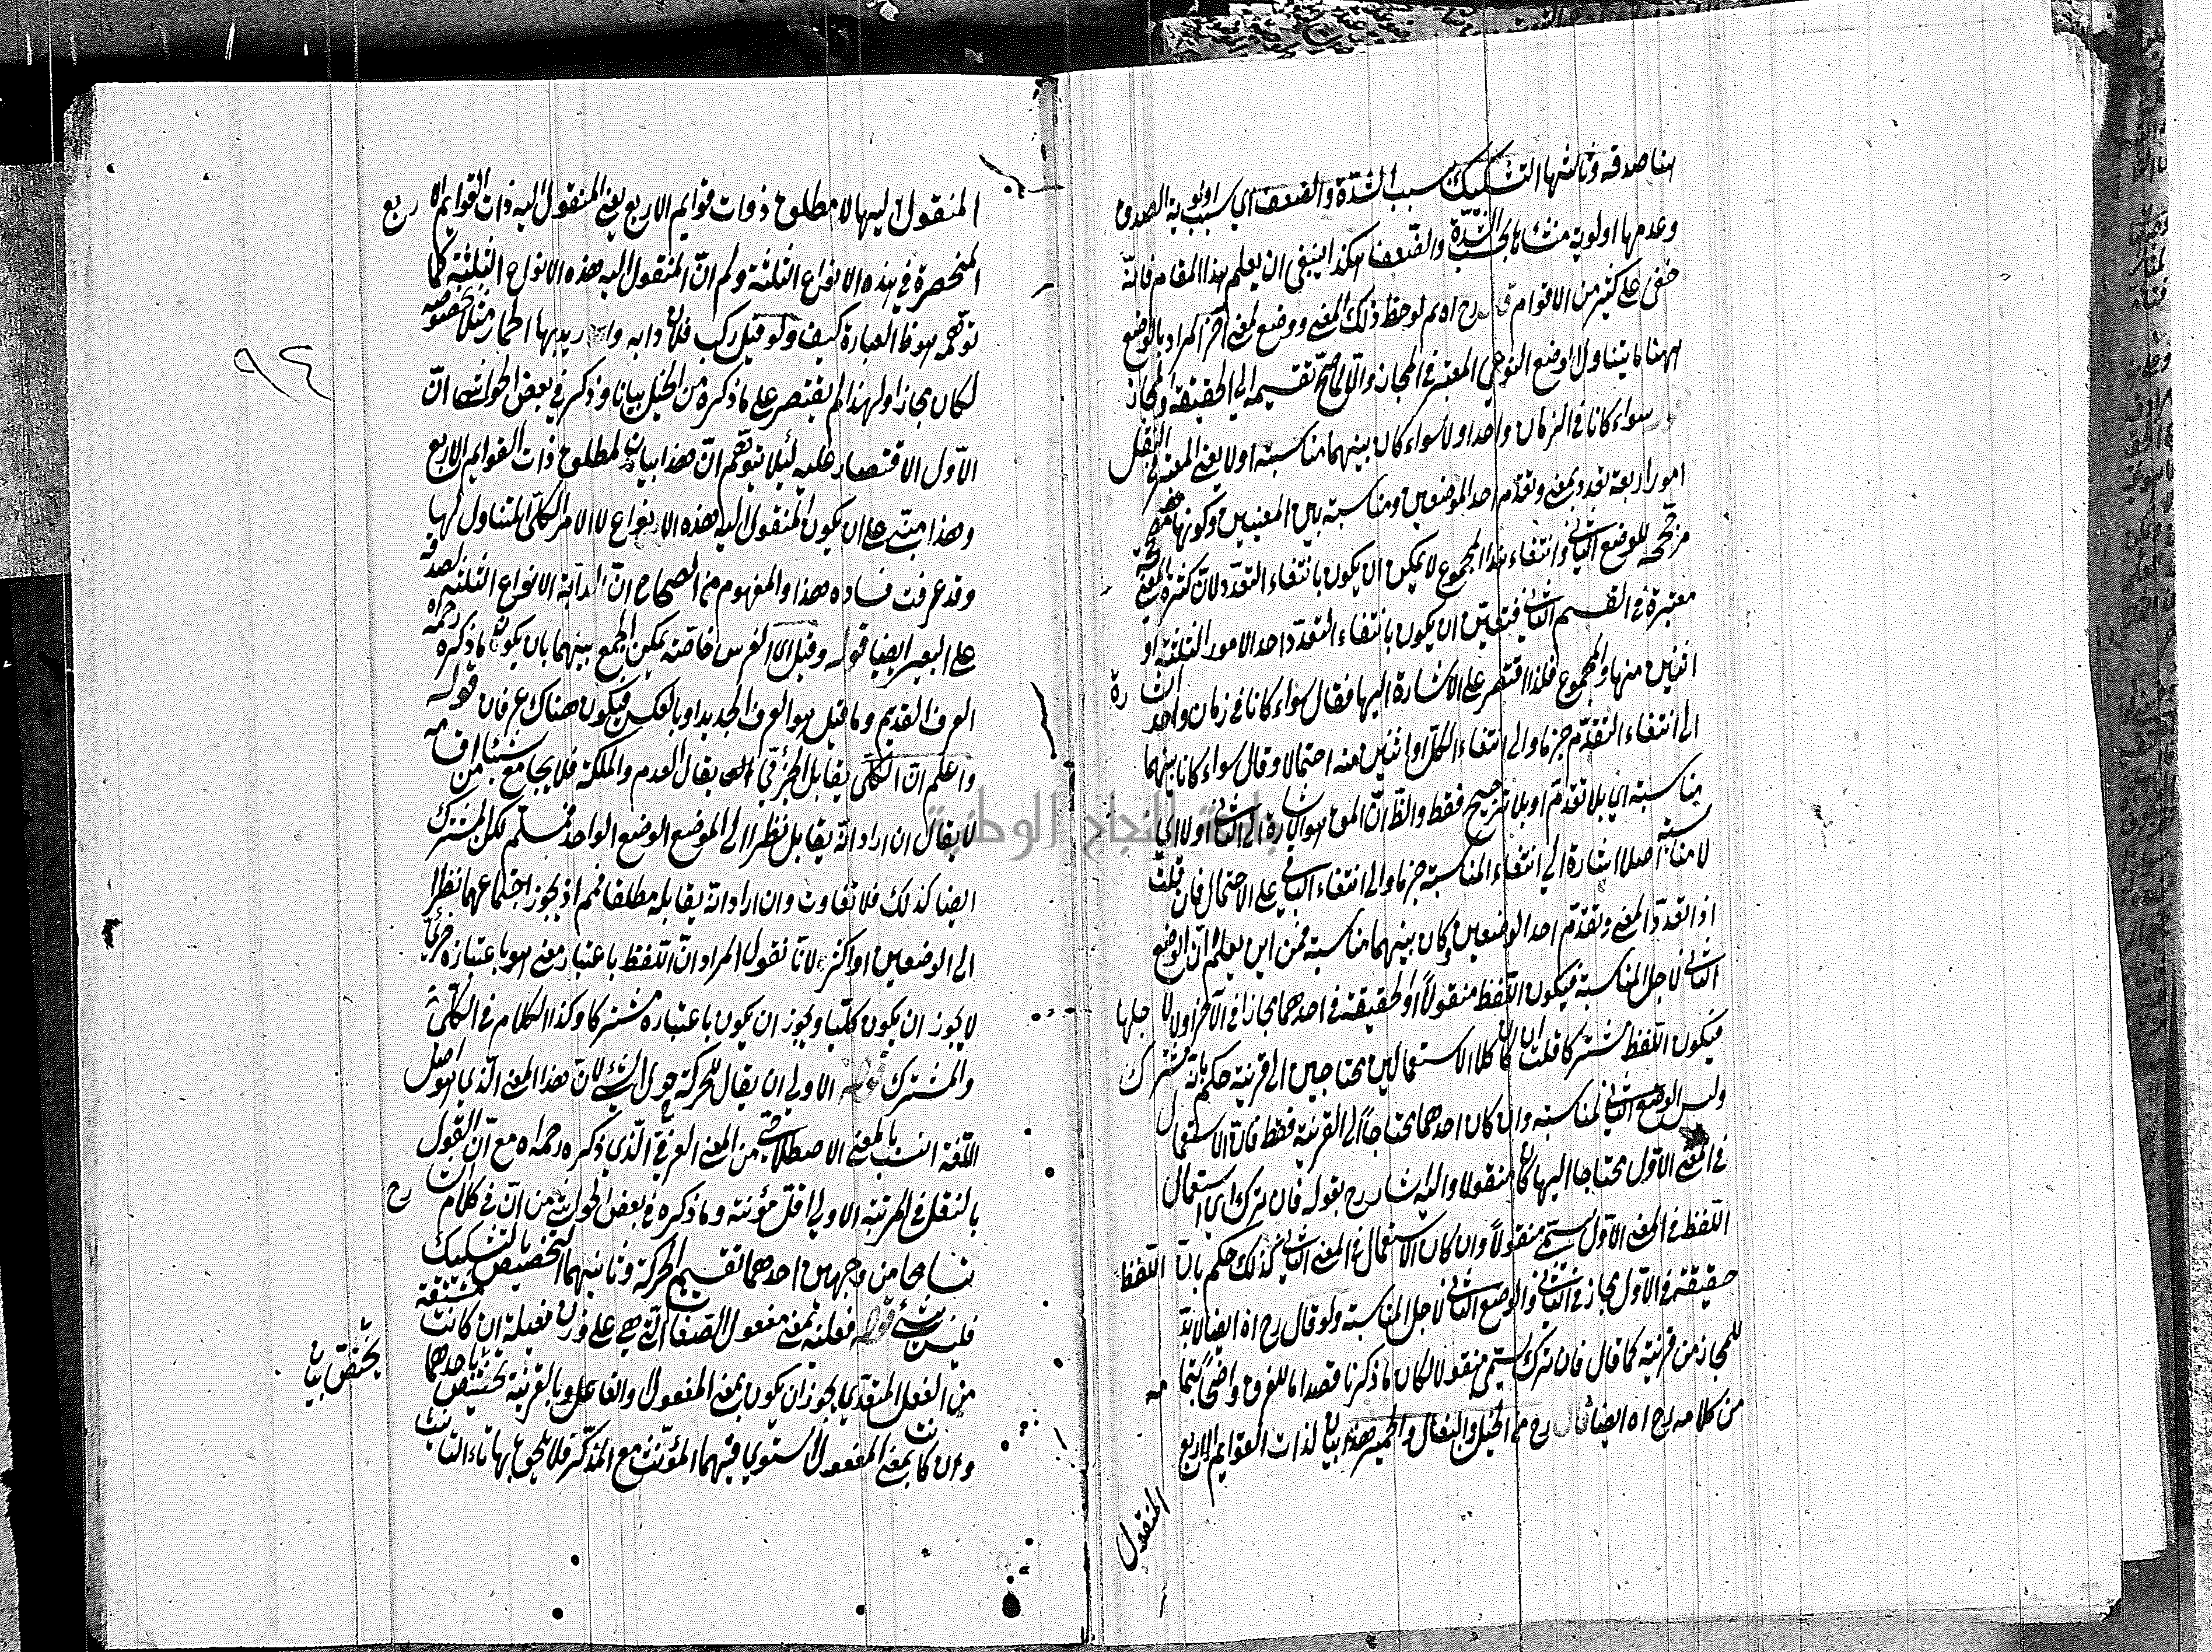 هنا صدقه وثالثها التشكيك بسبب الشدة والضعف اي بسبب اولوية الصدق
وعدمها اولوية منشاها بحسب الشدة والضعف هكذا ينبغي ان يعلم هذا المقام فانه
خفي على كثير من الاقوام قال رح اه لم لوحظ ذلك المعنى ووضع لمعنى آخر المراد بالوضع
ههنا ما يتناول الوضع النوعي المعتبر في المجاز والا لما صح تقسيمه الى الحقيقة والمجاز
سواء كانا في الزمان واحدا ولا سواء كان بينهما مناسبة اولا يعني المعتبر في النقل
امور اربعة تعدد المعنى وتقدم احد الوضعين ومناسبة بين المعنيين وكونها مصححة
مرجحة للوضع الثاني وانتفاء هذا المجموع لا يمكن ان يكون بانتفاء التعدد لان كثرة المعنى
معتبرة في القسم الثاني فتعين ان يكون بانتفاء التعدد احد الامور الثلثة او
اثنين منها والمجموع فلذا اقتصر على الاشارة اليها فقال سواء كانا في زمان واحد اشارة
الى انتفاء التقدم جزما والى انتفاء الكل او اثنين منه احتمالا وقال سواء كانا بينهما
مناسبة اي بلا تقدم او بلا ترجيح فقط والظ ان المق هو الاشارة الى الثاني اولا اي
لا مناسبة اصلا اشارة الى انتفاء المناسبة جزما والى انتفاء الباقي على الاحتمال فان قلت
اذا تعدد المعنى وتقدم احد الوضعين وكان بينهما مناسبة فمن اين يعلم ان الوضع
الثاني لاجل المناسبة فيكون اللفظ منقولا او حقيقة في احدهما مجازا في الآخر اولا لا جلها
فيكون اللفظ مشتركا قلت ان كان كلا الاستعمالين محتاجين الى قرينة حكم بانه مشترك
وليس الوضع الثاني لمناسبة وان كان احدهما محتاجا الى القرينة فقط فان الاستعمال
في المعنى الاول محتاجا اليها كان منقولا واليه اشار رح بقوله فان ترك اي استعمال
اللفظ في المعنى الاول يسمى منقولا وان كان الاستعمال في المعنى الثاني كذلك حكم بان اللفظ
حقيقة في الاول مجاز في الثاني والوضع الثاني لاجل المناسبة ولو قال رح اه ايضا لابد
للمجاز من قرينة كما قال فان ترك يسمى منقولا لكان ما ذكرنا قصدا ما للفرق واضحا
من كلامه رح اه ايضا قال رح من الخيل والبغال والحمير هذه بيان لذات القوايم الاربع
المنقول
المنقول اليها لا مطلوح ذوات قوايم الاربع يعني المنقول اليه ذات القوايم الاربع
المنحصرة في هذه الانواع الثلثة ولم ان المنقول اليه هذه الانواع الثلثة كما
توهمه هو ظ العبارة كيف ولو قيل ركب فلان دابه واريد بها الحمار مثلا بخصوصه
لكان مجازا ولهذا لم يقتصر على ما ذكره من الخيل بيانا وذكر في بعض الحواشي ان
الاول الاقتصار عليه لئلا يتوهم ان هذا بيان لمطلوح ذات القوايم الاربع
وهذا مبني على ان يكون المنقول اليه هذه الانواع لا الامر الكلي المتناول لها
وقد عرفت فساده هذا والمفهوم من الصحاح ان الدابة الانواع الثلثة لصدقه
على البعير ايضا قوله وقيل الى الفرس خاصة يمكن الجمع بينهما بان يكون ما ذكره رحمه اه
العرف القديم وما قيل هو العرف الجديد او بالعكس فيكون هناك عرفان قوله
واعلم ان الكلي يقابل الجزئي تقابل العدم والملكة فلا يجامع شيئا من اقسامه
لا يقال ان اراد انه يقابل نظرا الى الوضع الواحد فمسلم لكن المشترك
ايضا كذلك فلا تفاوت وان اراد انه يقابله مطلقا فمم اذ يجوز اجتماعهما نظرا
الى الوضعين او اكثر لانا نقول المراد ان اللفظ باعتبار معنى هو باعتباره جزئي
لا يجوز ان يكون كليا ويجوز ان يكون باعتباره مشتركا وكذا الكلام في الكلي
والمشترك قوله الاولى ان يقال للحركة حول الشئ لان هذا المعنى الذي هو اصل
اللغة انسب بالمعنى الاصطلاحي من المعنى العرفي الذي ذكره رحمه اه مع ان القول
بالنقل في المرتبة الاولى اقل مؤنة وما ذكره في بعض الحواشي من ان في كلام الش رح
تسامحا من وجهين احدهما تقسيم الحركة وثانيهما التخصيص بالتشكيك
فليس بشئ قوله فعليه بمعنى مفعول الصفات التي هي على وزن فعيلة ان كانت مشتقة
من الفعل المتعدي يجوز ان يكون بمعنى المفعول والفاعل وبالقرينة تختص باحدهما
وان كانت بمعنى المفعول يستوي فيهما المؤنث مع المذكر فلا يلحق بها تاء التانيث
٩٤
جامعة النجاح الوطنية